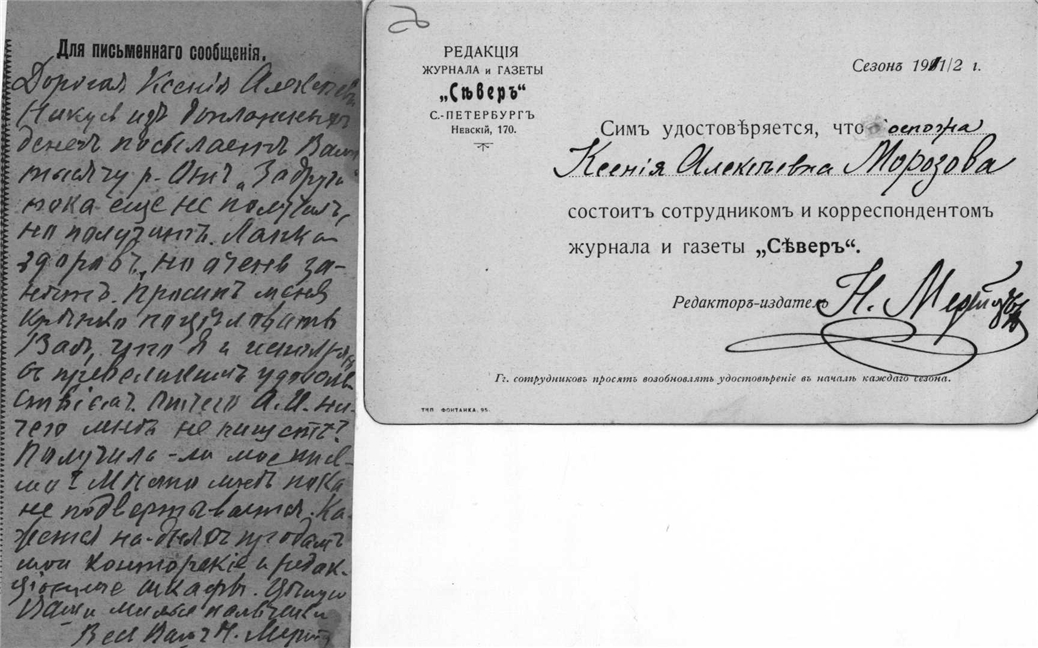 Для письменнаго сообщенія.
Дорогая Ксенія Алексѣев
денегъ посылаетъ Вамъ
тысячу р. Отъ „Задруги
пока еще не получалъ,
но получитъ. Лапка
здоровъ, но очень за-
нятъ. Проситъ меня
крѣпко поцѣловать
Васъ, что я и исполняю
съ превеликимъ удоволь
ствіемъ. Отчего А.И. ни-
чего мнѣ не пишетъ?
Получила-ли мое пись-
мо? Мѣсто мнѣ пока
не подвертывается. Ка-
жется на-дняхъ продамъ
мои конторскіе и редак-
ціонные шкафы. Цѣлую
Ваши милые пальчики
Весь Вашъ Н.
РЕДАКЦІЯ
ЖУРНАЛА и ГАЗЕТЫ
„Сѣверъ“
С.-ПЕТЕРБУРГЪ
Невскій, 170.
Сезонъ 1911/2 г.
Симъ удостовѣряется, что госпожа
Ксенія Алексѣевна Морозова
состоитъ сотрудникомъ и корреспондентомъ
журнала и газеты „Сѣверъ“.
Редакторъ-издатель Н.
Гг. сотрудниковъ просятъ возобновлять удостовѣреніе въ началѣ каждаго сезона.
ТИП. ФОНТАНКА, 95.